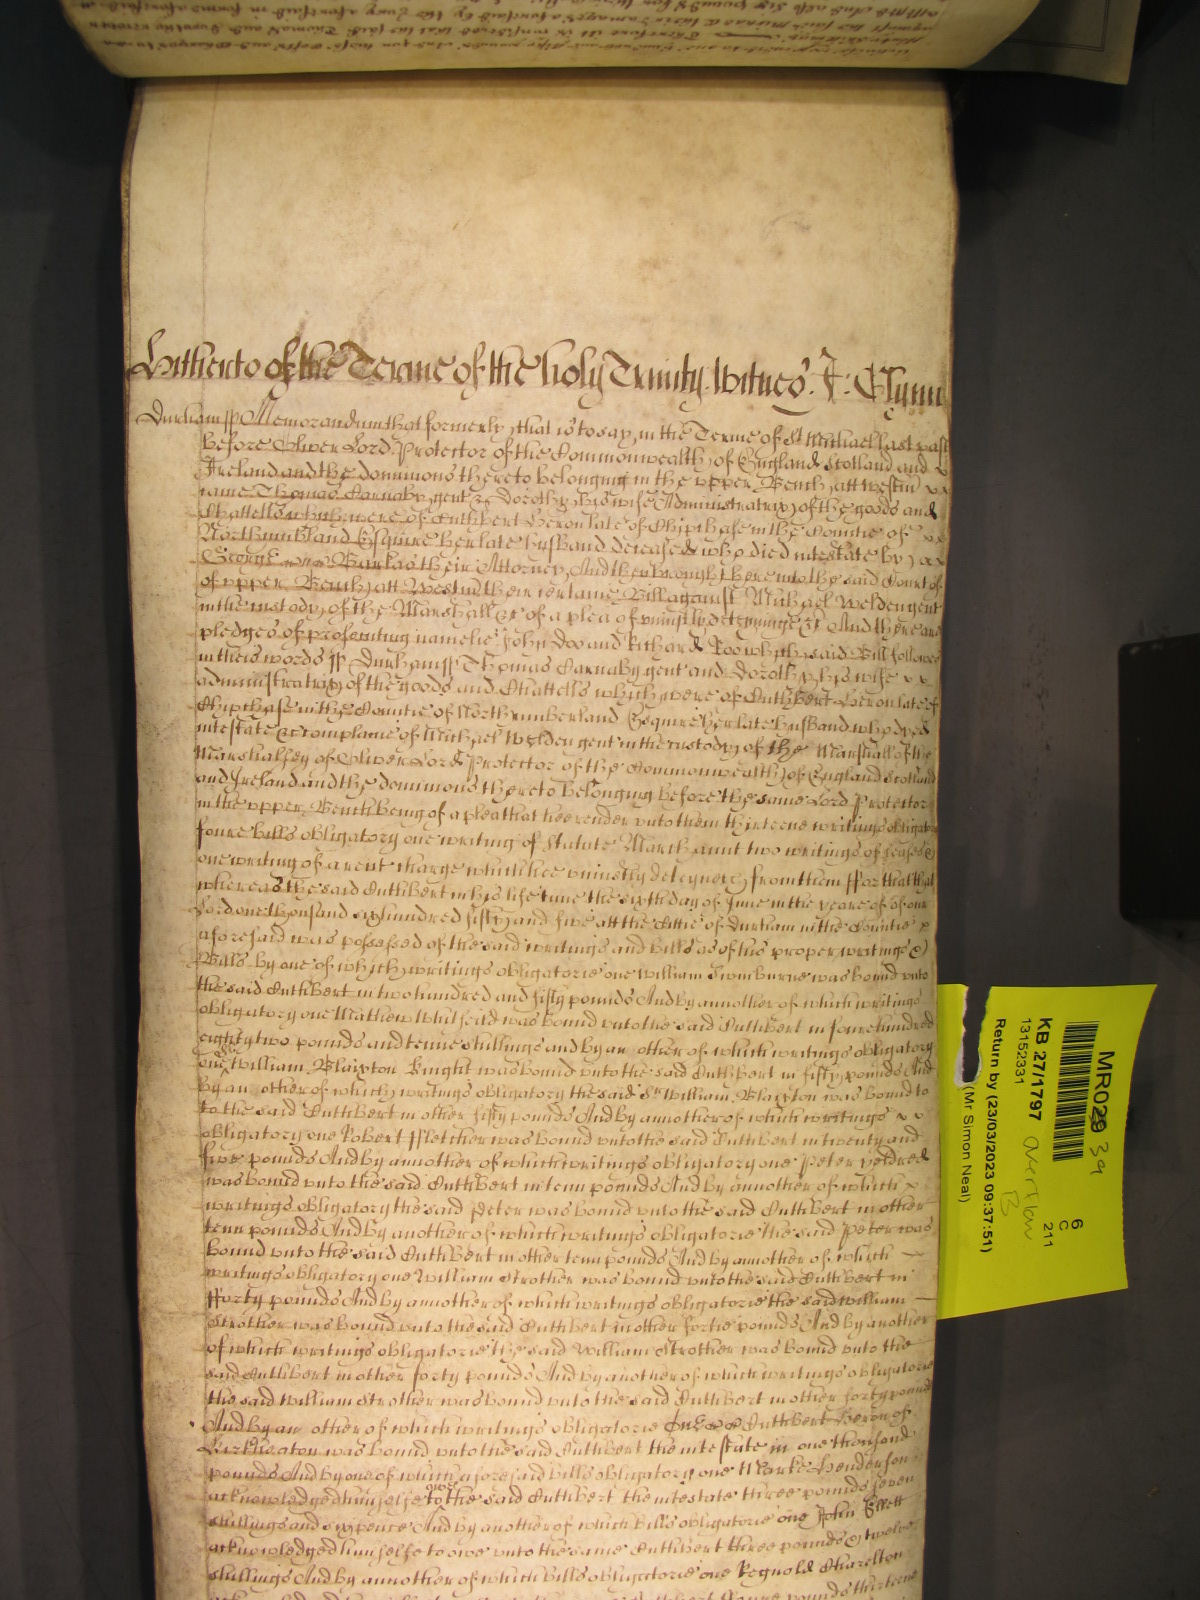 Hitherto of the Terme of the holy Trinity. Witnes. J: Glynn
Durham ss Memorandum that formerly, that is to say, in the Terme of St Michael last past
before Oliver Lord Protector of the Commonwealth of England Scotland and
Ireland and the dominions thereto belonging in the upper Bench att Westm
came Thomas Carnaby gent & Dorothy his wife Administratrix of the goods and
Chattells which were of Cuthbert Heron late of Chipchase in the Countie of
Northumbland Esquire her late husband deceased who died intestate by
George Barkas their Attorney, And they brought here into the said Court of
upper Bench att Westm their certaine Bill against Michael Weldon gent
in the custody of the Marshall &c of a plea of uniustly deteyninge &c And there are
pledges of prosecuting namelie John Doo and Richard Roo which said Bill followes
in theis words ss Durham ss Thomas Carnaby gent and Dorothy his wife
administratrix of the goods and Chattells which were of Cuthbert Heron late of
Chipchase in the Countie of Northumberland Esquire her late husband who dyed
intestate &c complaine of Michael Weldon gent in the custody of the Marshall of the
Marshalsey of Oliver Lord Protector of the Commonwealth of England Scotland
and Ireland and the dominions thereto belonging before the same Lord Protector
in the upper Bench being of a plea that hee render unto them thirteene writings obligatory
foure bills obligatory one writing of Statute Marchant two writings of
one writing of a rent charge which hee uniustly deteyneth from them ffor that that
whereas the said Cuthbert in his life time the sixth day of June in the yeare of our
Lord one thousand six hundred fifty and five att the Cittie of Durham in the Countie
aforesaid was possessed of the said writings and bills as of his proper writings &
Bills by one of which writings obligatorie one William Swinburne was bound unto
the said Cuthbert in two hundred and fifty pounds And by annother of which writings
obligatory one Mathew Whitfeild was bound unto the said Cuthbert in foure hundred
eighty two pounds and tenne shillings and by an other of which writings obligatory
one Sr William Blaixton Knight was bound unto the said Cuthbert in fifty pounds And
by an other of which writings obligatory the said Sr William Blaixton was bound to
to the said Cuthbert in other fifty pounds And by annother of which writings
obligatory one Robert ffletcher was bound unto the said Cuthbert in twenty and
five pounds And by annother of which writings obligatory one Peter
was bound unto the said Cuthbert in tenn pounds And by annother of which
writings obligatory the said Peter was bound unto the said Cuthbert in other
tenn pounds And by another of which writings obligatorie the said Peter was
bound unto the said Cuthbert in other tenn pounds And by annother of which
writings obligatory one William Strother was bound unto the said Cuthbert in
fforty pounds And by annother of which writings obligatorie the said William
Strother was bound unto the said Cuthbert in other fortie pounds And by another
of which writings obligatorie the said William Strother was bound unto the
said Cuthbert in other forty pounds And by another of which writings obligatorie
the said William Strother was bound unto the said Cuthbert in other forty pounds
And by an other of which writings obligatorie one Cuthbert Heron of
Kirkheaton was bound unto the said Cuthbert the intestate in one thousand
pounds And by one of which aforesaid bills obligatory one Marke Henderson
acknowledged himselfe to owe the said Cuthbert the intestate three pounds seven
shillings and sixpence And by another of which bills obligatorie one John Ellett
acknowledged himselfe to owe unto the same Cuthbert three pounds & twelve
shillings And by annother of which bills obligatorie one Reynold Charelton
pounds thirteene
MR029
39
KB 27/1797
13152331
Return by (23/03/2023 09:37:51)
(Mr Simon Neal)
overflow
B
6
C
211